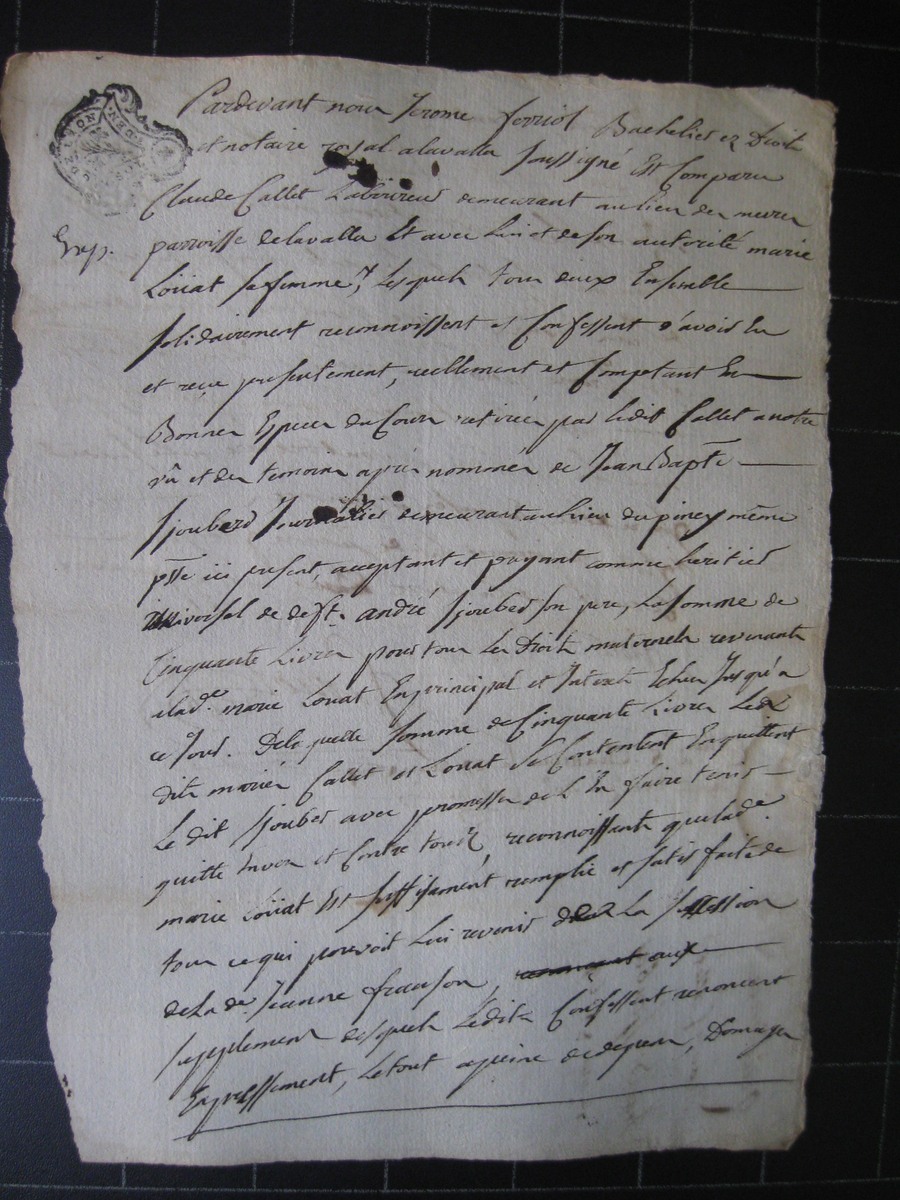 Pardevant nous Jerome ferriol Bachelier ez Droit
et notaire royal alavalla soussigné Est Comparu
Claude Callet Laboureur demeurant au lieu des
Exp.
parroisse delavalla Et avec Lui et deson autorité marie
Loüat safemme, Lesquels tous deux Ensemble
solidairement reconnoissent et Confessent d'avoir Eu
et reçu presentement, reellement et Comptant En
Bonnes Especes du Cours retirée par Ledit Callet a notre
vû et des temoins après nommés de Jean Bapte
sjoubert Journalier demeurant au lieu du piney même
psse ici present, acceptant et payant comme heritier
universel de deft. andré sjoubert son pere, La somme de
Cinquante Livres pour tous Les Droits maternels revenants
alade. marie Loüat En principal et Interets Echus Jusqu'a
ce Jour. De la quelle somme de Cinquante Livres Les
dits mariés Callet et Loüat se Contentent En quittent
Le dit sjoubert avec promesse de L'En faire tenir
quitte Envers et Contre tous, reconnoissants que lade.
marie Loüat Est suffisament remplie et satisfaite de
tous ce qui pouvoit Lui revenir de La succession
de Lade. Jeanne franson,
supplement desquels Lesdits Confessent renoncent
Expressement, Le tout a peine de depens, Domages